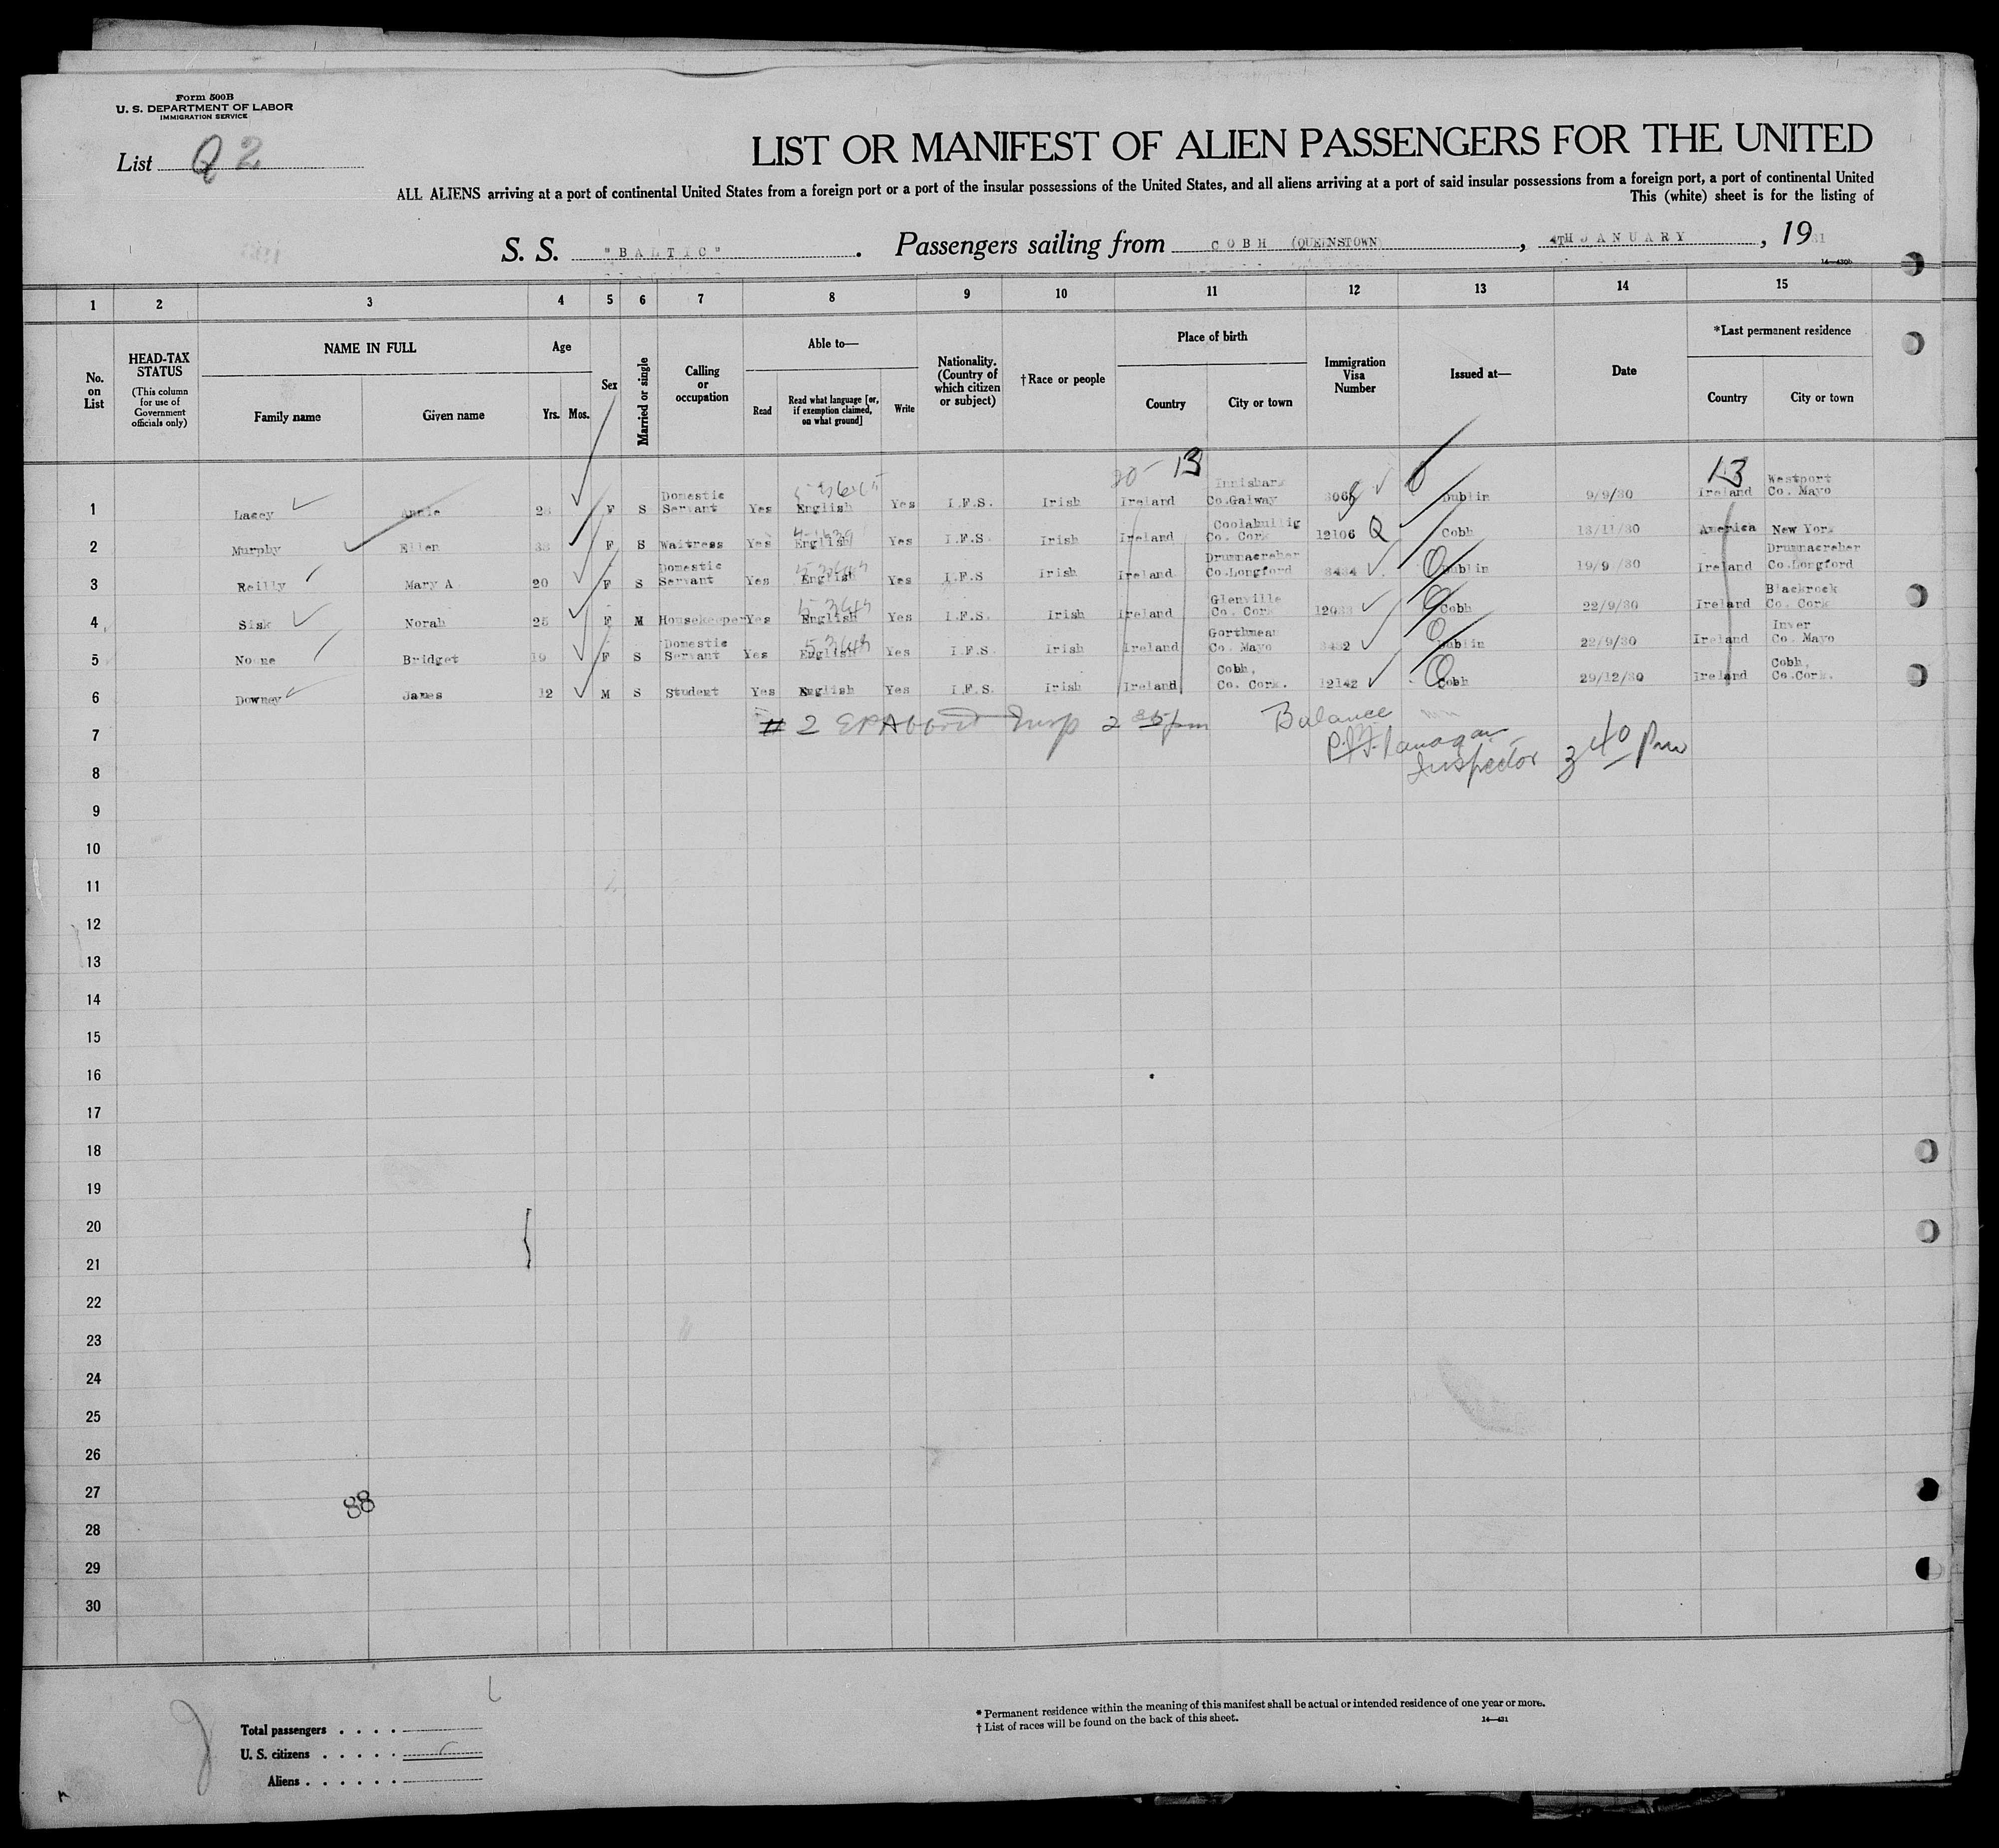 Form 500B
U. S. DEPARTMENT OF LABOR
IMMIGRATION SERVICE
List Q 2
LIST OR MANIFEST OF ALIEN PASSENGERS FOR THE UNITED
ALL ALIENS arriving at a port of continental United States from a foreign port or a port of the insular possessions of the United States, and all aliens arriving at a port of said insular possessions from a foreign port, a port of continental United
This (white) sheet is for the listing of
S. S. "BALTIC". Passengers sailing from COBH (QUEENSTOWN), 4TH JANUARY, 1931
14—430b
1 2 3 4 5 6 7 8 9 10 11 12 13 14 15
No. on List
HEAD-TAX STATUS
(This column for use of Government officials only)
NAME IN FULL
Family name
Given name
Age
Yrs. Mos.
Sex
Married or single
Calling or occupation
Able to—
Read
Read what language [or, if exemption claimed, on what ground]
Write
Nationality. (Country of which citizen or subject)
† Race or people
Place of birth
Country
City or town
Immigration Visa Number
Issued at—
Date
*Last permanent residence
Country
City or town
13
13
1 Lacey Annie F S Domestic Servant Yes English Yes I.F.S. Irish Ireland Co.Galway Dublin 9/9/30 Ireland Westport Co. Mayo
2 Murphy Ellen F S Waitress Yes English Yes I.F.S Irish Ireland Coolahullig Co. Cork 12106 Q Cobh 13/11/30 America New York
3 Reilly Mary A 20 F S Domestic Servant Yes English Yes I.F.S Irish Ireland Drumnacreher Co.Longford 3434 Dublin 19/9/30 Ireland Drumnacreher Co.Longford
4 Sisk Norah 25 F M Housekeeper Yes English Yes I.F.S. Irish Ireland Glenville Co. Cork Cobh 22/9/30 Ireland Blackrock Co. Cork
5 Noone Bridget 19 F S Domestic Servant Yes English Yes I.F.S. Irish Ireland Co. Mayo Dublin 22/9/30 Ireland Inver Co. Mayo
6 Downey James 12 M S Student Yes English Yes I.F.S. Irish Ireland Cobh, Co. Cork. 12142 Cobh 29/12/30 Ireland Cobh, Co.Cork.
# 2 Insp 2 pm Balance
7
P.J. Flanagan
8
Inspector 3 40 pm
9
10
11
12
13
14
15
16
17
18
19
20
21
22
23
24
25
26
27
88
28
29
30
* Permanent residence within the meaning of this manifest shall be actual or intended residence of one year or more.
† List of races will be found on the back of this sheet.
14—431
Total passengers
U. S. citizens
Aliens